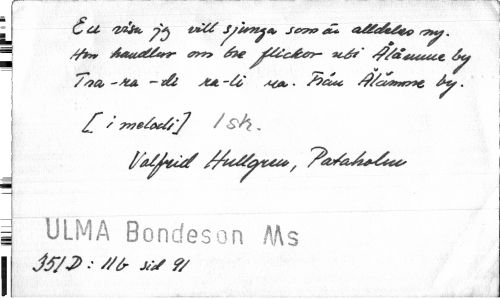 En visa jag vill sjunga som är alldeles ny.
Hon handlar om tre flickor uti Ålämne by
Tra-ra-di ra-li ra. Från Ålämne by.
[1 melodi] 1 sk.
Valfrid Hullgren, Pataholm
ULMA Bondeson Ms
351D: 11b sid 91